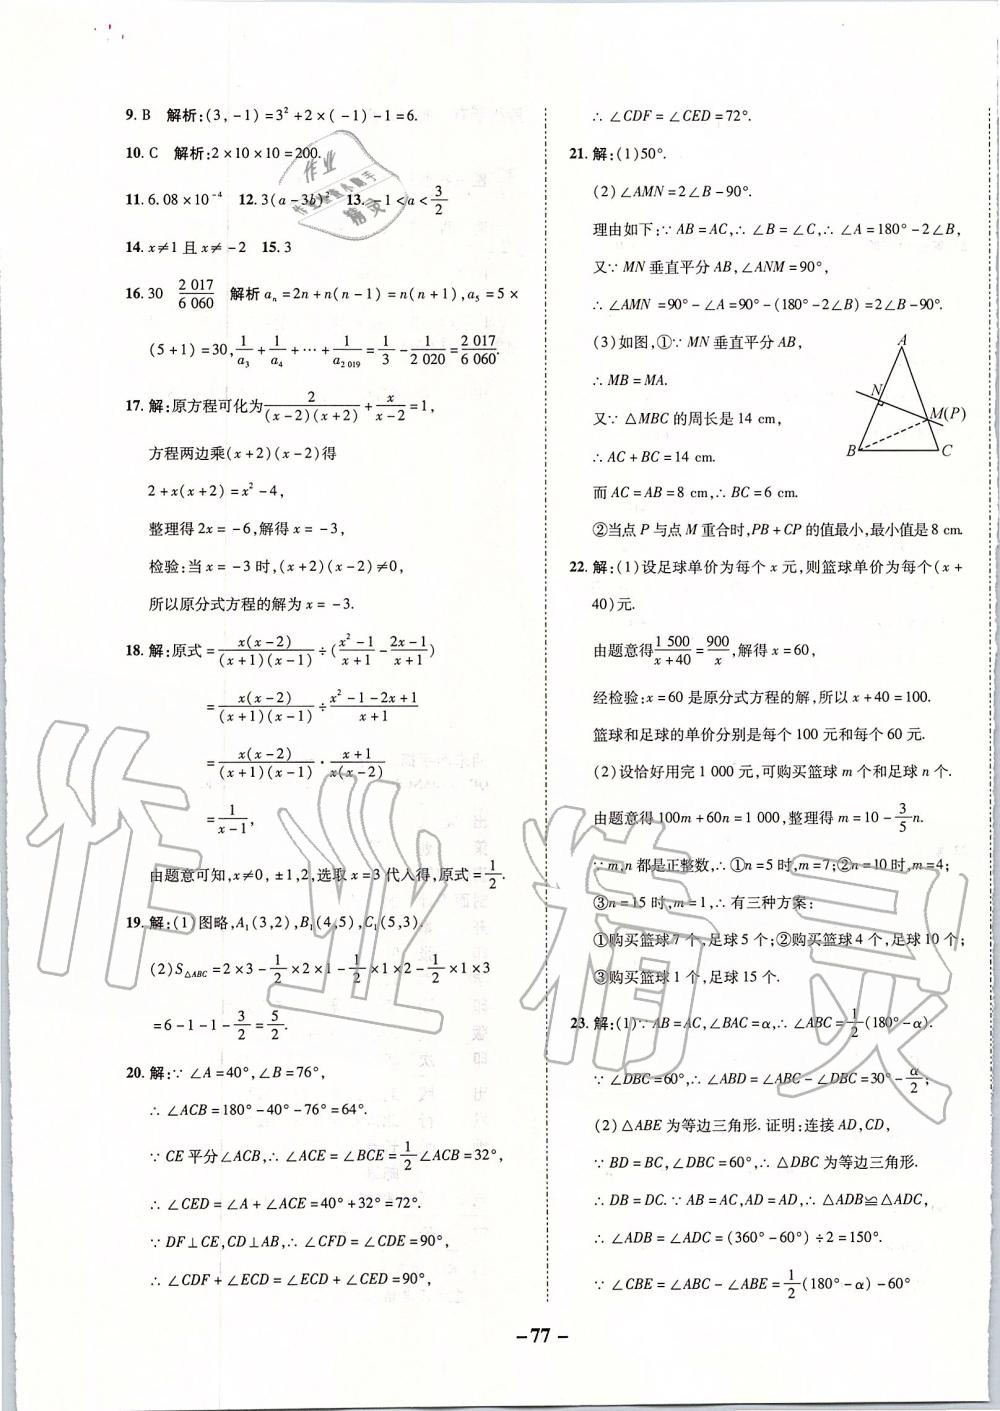 9. B 解析:(3,-1)=3²+2×(-1)-1=6.
10. C 解析:2×10×10=200.
11. 6.08×10⁻⁴ 12. 3(a-3b)² 13. -1<a<3/2
14. x≠1且x≠-2 15. 3
16. 30 2 017/6 060 解析 aₙ=2n+n(n-1)=n(n+1),a₅=5×
(5+1)=30,1/a₃+1/a₄+…+1/a₂ ₀₁₉=1/3-1/2 020=2 017/6 060.
17. 解:原方程可化为2/(x-2)(x+2)+x/x-2=1,
方程两边乘(x+2)(x-2)得
2+x(x+2)=x²-4,
整理得2x=-6,解得x=-3,
检验:当x=-3时,(x+2)(x-2)≠0,
所以原分式方程的解为x=-3.
18. 解:原式=x(x-2)/(x+1)(x-1)÷(x²-1/x+1-2x-1/x+1)
=x(x-2)/(x+1)(x-1)÷x²-1-2x+1/x+1
=x(x-2)/(x+1)(x-1)·x+1/x(x-2)
=1/x-1,
由题意可知,x≠0,±1,2,选取x=3代入得,原式=1/2.
19. 解:(1)图略,A₁(3,2),B₁(4,5),C₁(5,3).
(2)S△ABC=2×3-1/2×2×1-1/2×1×2-1/2×1×3
=6-1-1-3/2=5/2.
20. 解:∵∠A=40°,∠B=76°,
∴∠ACB=180°-40°-76°=64°.
∵CE平分∠ACB,∴∠ACE=∠BCE=1/2∠ACB=32°,
∴∠CED=∠A+∠ACE=40°+32°=72°.
∵DF⊥CE,CD⊥AB,∴∠CFD=∠CDE=90°,
∴∠CDF+∠ECD=∠ECD+∠CED=90°,
∴∠CDF=∠CED=72°.
21. 解:(1)50°.
(2)∠AMN=2∠B-90°.
理由如下:∵AB=AC,∴∠B=∠C,∴∠A=180°-2∠B,
又∵MN垂直平分AB,∠ANM=90°,
∴∠AMN=90°-∠A=90°-(180°-2∠B)=2∠B-90°.
(3)如图,①∵MN垂直平分AB,
∴MB=MA.
又∵△MBC的周长是14 cm,
∴AC+BC=14 cm.
而AC=AB=8 cm,∴BC=6 cm.
A
N
M(P)
B
C
②当点P与点M重合时,PB+CP的值最小,最小值是8 cm.
22. 解:(1)设足球单价为每个x元,则篮球单价为每个(x+
40)元.
由题意得1 500/x+40=900/x,解得x=60,
经检验:x=60是原分式方程的解,所以x+40=100.
篮球和足球的单价分别是每个100元和每个60元.
(2)设恰好用完1 000元,可购买篮球m个和足球n个.
由题意得100m+60n=1 000,整理得m=10-3/5n.
∵m,n都是正整数,∴①n=5时,m=7;②n=10时,m=4;
③n=15时,m=1,∴有三种方案:
①购买篮球7个,足球5个;②购买篮球4个,足球10个;
③购买篮球1个,足球15个.
23. 解:(1)∵AB=AC,∠BAC=α,∴∠ABC=1/2(180°-α).
∵∠DBC=60°,∴∠ABD=∠ABC-∠DBC=30°-α/2;
(2)△ABE为等边三角形.证明:连接AD,CD,
∵BD=BC,∠DBC=60°,∴△DBC为等边三角形.
∴DB=DC.∵AB=AC,AD=AD,∴△ADB≌△ADC,
∴∠ADB=∠ADC=(360°-60°)÷2=150°.
∵∠CBE=∠ABC-∠ABE=1/2(180°-α)-60°
-77-
作业精灵